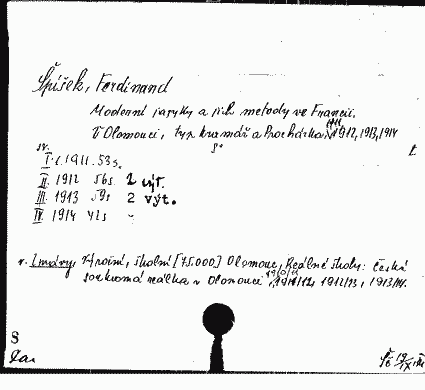 Špíšek, Ferdinand
Moderní jazyky a jich metody ve Francii.
V Olomouci, typ Kramář a Procházka, 1911, 1912, 1913, 1914
sv. 8°
I. č. 1911. 53 s.
II. 1912 56 s. 2 výt.
III. 1913 59 s. 2 výt.
IV. 1914 42 s.
v. Zprávy, Výroční, školní [75.000] Olomouc, Reálné školy: Česká
soukromá reálka v Olomouci, 1910/11, 1911/12, 1912/13, 1913/14.
S